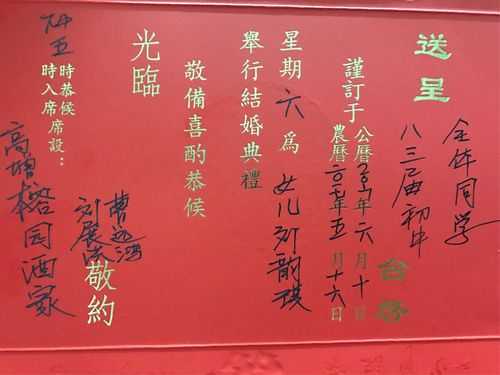 送呈
全体同学
八三届初中
台啓
謹訂于
公曆二〇一七年六月十日
農曆二〇一七年五月十六日
星期六為女儿刘韵琪
舉行結婚典禮
敬備喜酌恭候
光臨
敬約
下午五時恭候
時入席席設：
高增榕园酒家